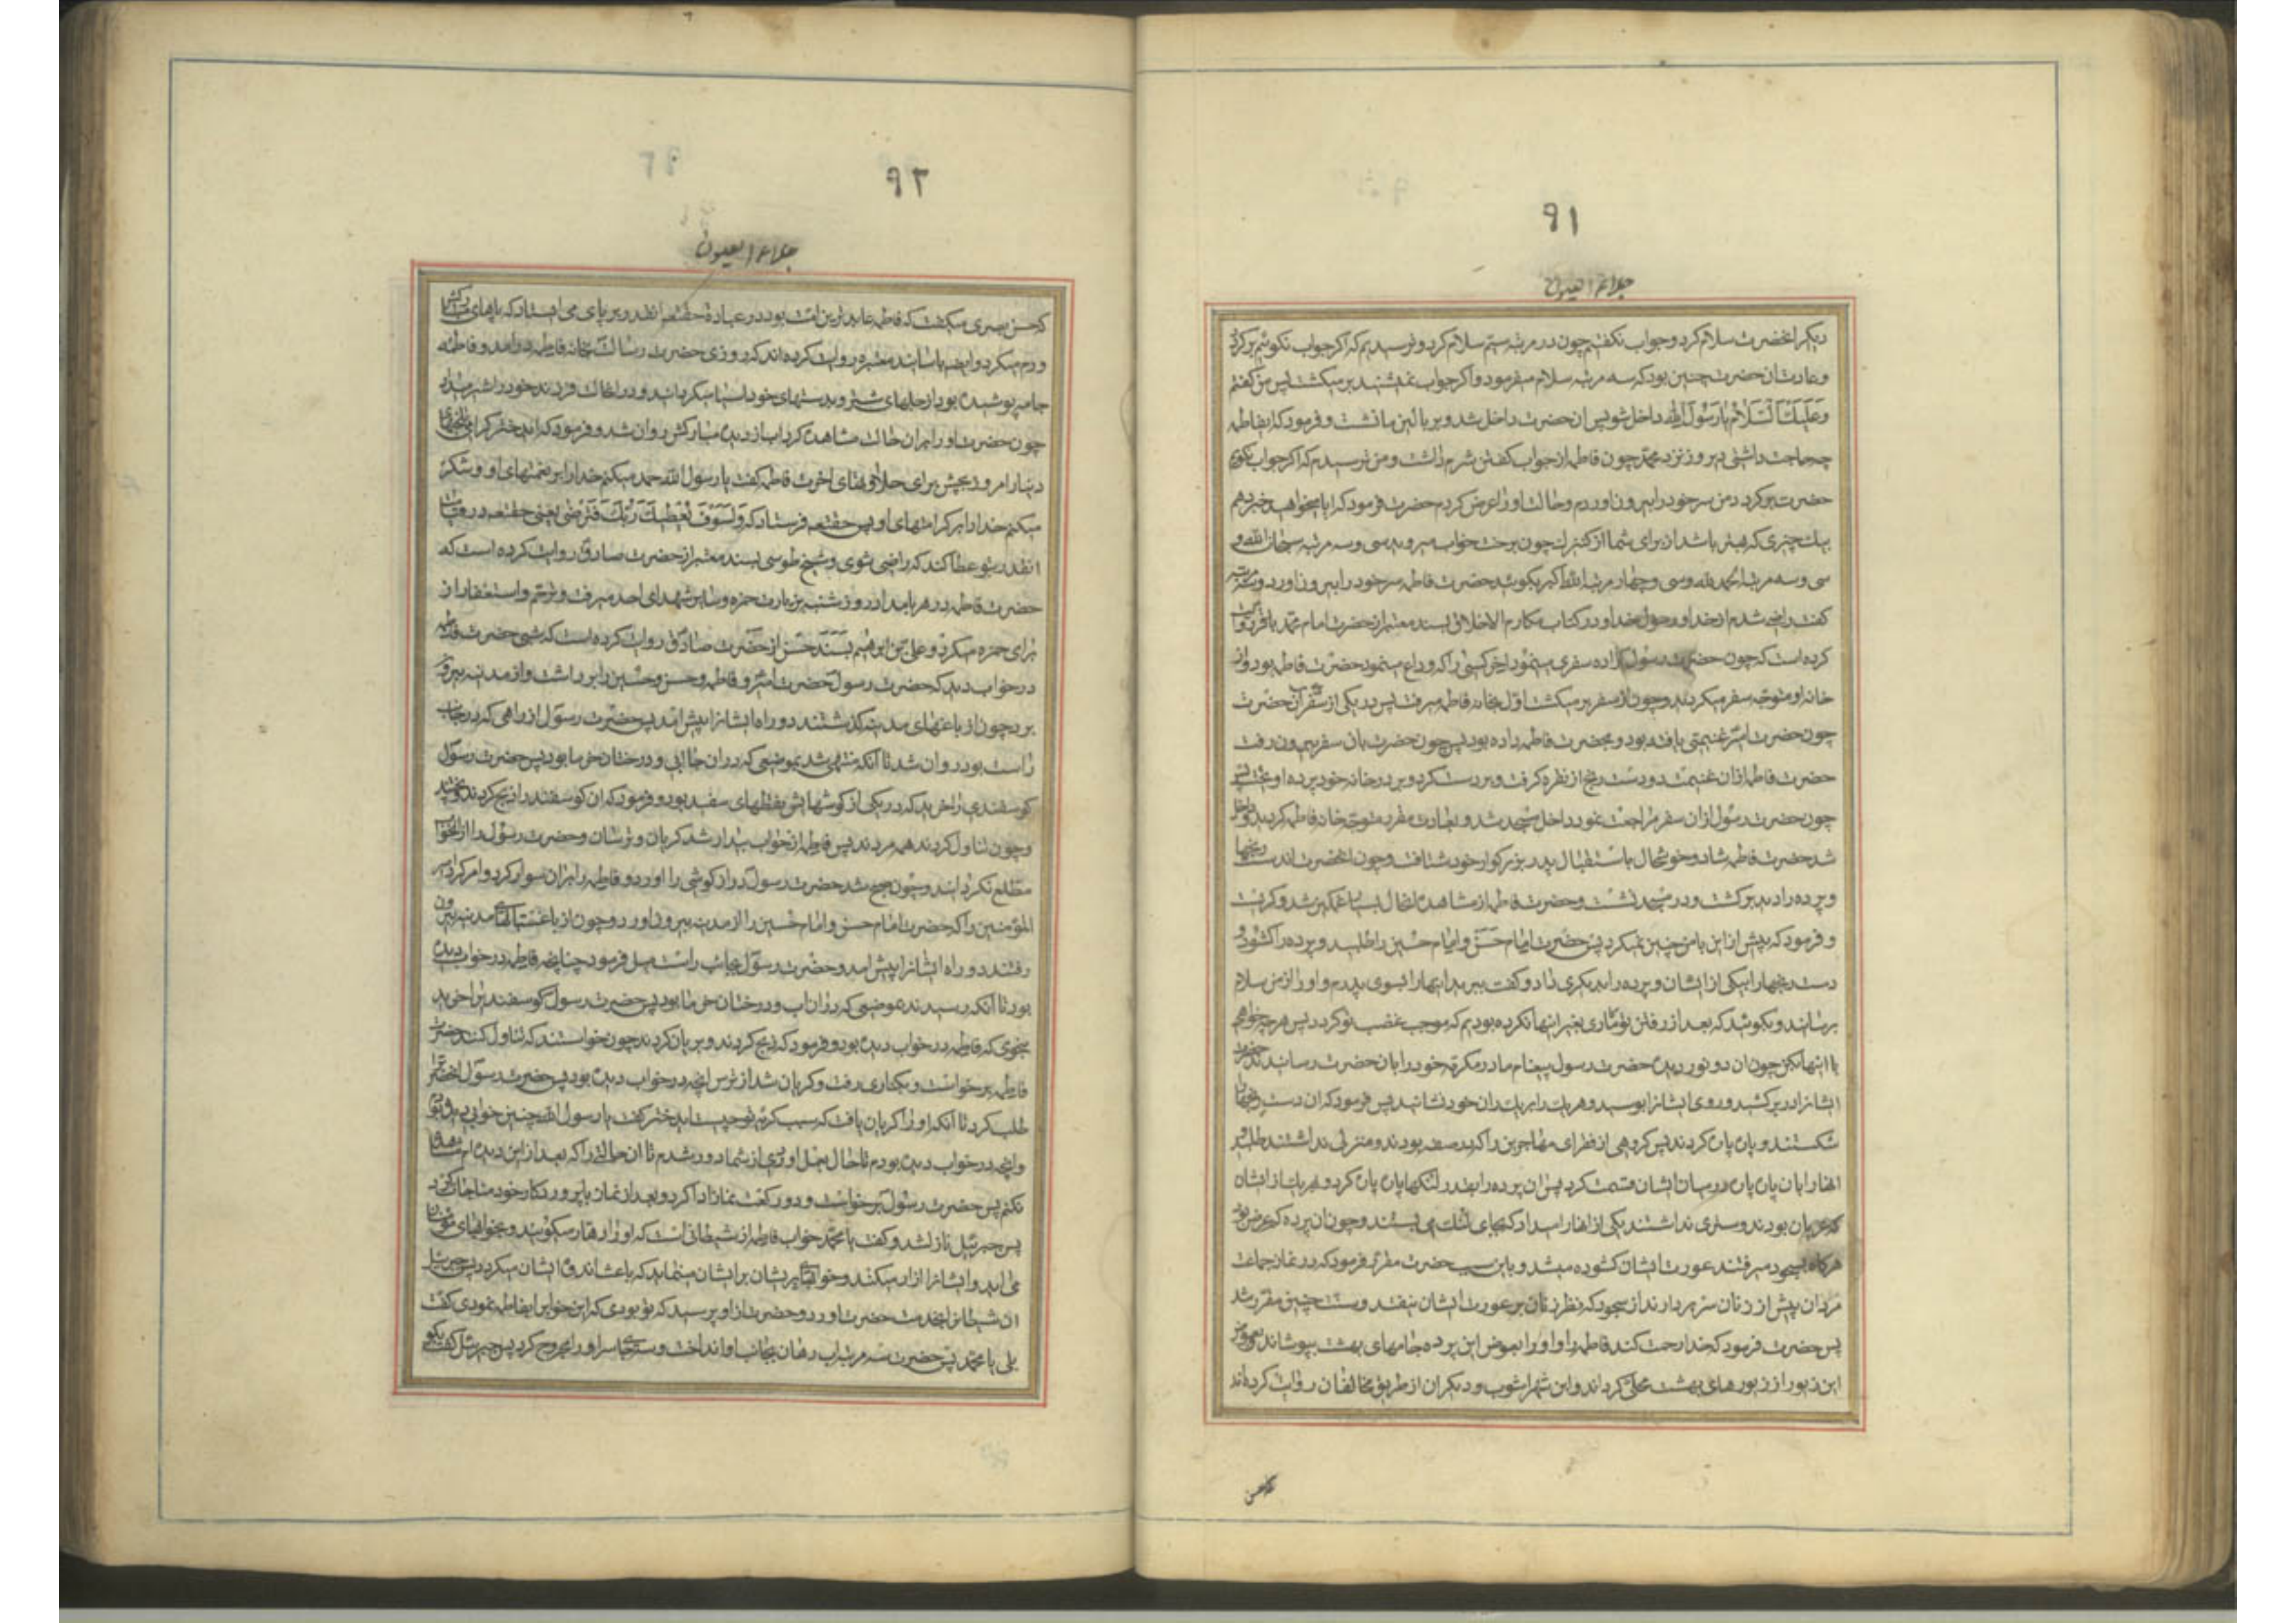 ۹۱
جلاء العیون
دیکر انحضرت سلام کرد و جواب نکفتیم چون در مرتبه سیم سلام کرد و ترسیدیم که اکر جواب نکوئیم برکردد
و عادت ان حضرت چنین بود که سه مرتبه سلام میفرمود و اکر جواب نمیشنید بر میکشت پس من کفتم
وعلیک السلام یا رسول الله داخل شو پس ان حضرت داخل شد و بر بالین ما نشست و فرمود که ایفاطمه
چه حاجت داشتی دیروز نزد محمد چون فاطمه از جواب کفتن شرم داشت و من ترسیدم که اکر جواب نکویم
حضرت برکردد من سر خود را بیرون اوردم و حالت او را عرض کردم حضرت فرمود که ایا میخواهید خبر دهم
بیک چیزی که بهتر باشد از برای شما از کنیزک چون برخت خواب میروید سی و سه مرتبه سبحان الله و
سی و سه مرتبه الحمد لله و سی و چهار مرتبه الله اکبر بکوئید حضرت فاطمه سر خود را بیرون اورد و سه مرتبه
کفت راضی شدم از خدا و رسول خدا و در کتاب مکارم الاخلاق بسند معتبر از حضرت امام محمد باقر روایت
کرده است که چون حضرت رسول اراده سفری مینمود اخر کسی را که وداع مینمود حضرت فاطمه بود و از
خانه او متوجه سفر میکردید و چون از سفر بر میکشت اول بخانه فاطمه میرفت پس در یکی از سفرهای آن حضرت
چون حضرت امیر غنیمتی یافته بود و بحضرت فاطمه داده بود پس چون حضرت بان سفر بیرون رفت
حضرت فاطمه ازان غنیمت دو دست رنج از نقره کرفت و بر دست کرد و بر در خانه خود پرده اویخت پس
چون حضرت رسول ازان سفر مراجعت نمود داخل مسجد شد و بعادت مقرر متوجه خانه فاطمه کردید و داخل
شد حضرت فاطمه شاد و خوشحال باستقبال پدر بزرکوار خود شتافت و چون انحضرت اندست رنجها
و پرده را دید برکشت و در مسجد نشست و حضرت فاطمه از مشاهده انحال بسیار غمکین شد و کریست
و فرمود که پیش از این با من چنین نمیکرد پس حضرت امام حسن و امام حسین را طلبید و پرده را کشود و
دست رنجها را بیکی از ایشان و پرده را بدیکری داد و کفت ببرید اینها را بسوی پدرم و او را از من سلام
برسانید و بکوئید که بعد از رفتن تو ما کاری بغیر اینها نکرده بودیم که موجب غضب تو کردد پس هر چه خواهی
با اینها بکن چون ان دو نور دیده حضرت رسول پیغام مادر مکرمه خود را بان حضرت رسانیدند حضرت
ایشانرا در بر کشید و روی ایشانرا بوسید و هر یک را بر یک ران خود نشانید پس فرمود که ان دست رنجها را
شکستند و پاره پاره کردند پس کروهی از فقرای مهاجرین را که در صفه بودند و منزلی نداشتند طلبید و
انها را بان پاره پاره در میان ایشان قسمت کرد پس ان پرده را بقدر لنکها پاره پاره کرد و هر یک از ایشان
که عریان بودند و ستری نداشتند یکی از انها را میداد که بجای لنک می بستند و چون ان پرده کم عرض بود
هرکاه بسجود میرفتند عورت ایشان کشوده میشد و باین سبب حضرت مقرر فرمود که در نماز جماعت
مردان پیش از زنان سر بردارند از سجود که نظر زنان بر عورت ایشان نیفتد و سنت چنین مقرر شد
پس حضرت فرمود که خدا رحمت کند فاطمه را و او را بعوض این پرده جامهای بهشت بپوشاند و بعوض
این زیور از زیورهای بهشت محلی کرداند و ابن شهراشوب و دیکران از طریق مخالفان روایت کرده‌اند
که حسن
۹۲
جلاء العیون
که حسن بصری میکفت که فاطمه عابدترین امت بود در عبادة حقتعالی انقدر بر پای می ایستاد که پاهای مبارکش
ورم میکرد و ایضا باسانید معتبره روایت کرده اند که روزی حضرت رسالت بخانه فاطمه درامد و فاطمه
جامه پوشیده بود از جلهای شتر و بدستهای خود اسیا میکردانید و دران حالت فرزند خود را شیر میداد
چون حضرت او را بران حالت مشاهده کرد اب از دیده مبارکش روان شد و فرمود که ایدختر کرامی تلخیهای
دنیا را امروز بچش برای حلاوتهای اخرت فاطمه کفت یا رسول الله حمد میکنم خدا را بر نعمتهای او و شکر
میکنم خدا را بر کرامتهای او پس حقتعالی فرستاد که ولسوف یعطیک ربک فترضی یعنی حقتعالی در قیامت
انقدر بتو عطا کند که راضی شوی و شیخ طوسی بسند معتبر از حضرت صادق روایت کرده است که
حضرت فاطمه در هر بامداد روز شنبه بزیارت حمزه و سایر شهدای احد میرفت و ترحم و استغفار از
برای حمزه میکرد و علی بن ابراهیم بسند حسن از حضرت صادق روایت کرده است که شبی حضرت فاطمه
در خواب دید که حضرت رسول حضرت امیر و فاطمه و حسن و حسین را برداشت و از مدینه بیرون
برد چون از باغهای مدینه کذشتند دو راه ایشانرا پیش امد پس حضرت رسول از راهی که در جانب
راست بود روان شد تا آنکه منتهی شد بموضعی که دران جا ابی و درختان خرما بود پس حضرت رسول
کوسفندی را خرید که در یکی از کوشهایش نقطهای سفید بود و فرمود که ان کوسفند را ذبح کردند و پختند
و چون تناول کردند همه مردند پس فاطمه از خواب بیدار شد کریان و ترسان و حضرت رسول را ازان خواب
مطلع نکردانید و چون صبح شد حضرت رسول دراز کوشی را اورد و فاطمه را بران سوار کرد و امر کرد امیر
المؤمنین را که حضرت امام حسن و امام حسین را از مدینه بیرون اورد و چون از باغستانهای مدینه بیرون
رفتند دو راه ایشانرا پیش امد و حضرت رسول بجانب راست میل فرمود چنانچه فاطمه در خواب دیده
بود تا آنکه رسیدند بموضعی که دران اب و درختان خرما بود پس حضرت رسول کوسفندی را خرید
بنحوی که فاطمه در خواب دیده بود و فرمود که ذبح کردند و بریان کردند چون خواستند که تناول کنند حضرت
فاطمه برخواست و بکناری رفت و کریان شد از ترس انچه در خواب دیده بود پس حضرت رسول انحضرترا
طلب کرد تا آنکه او را کریان یافت که سبب کریه تو چیست ایدختر کفت یا رسول الله چنین خوابی دیدم و تو
و انچه در خواب دیده بودم تا حال بعمل اوردی از شما دور شدم تا ان حالتی را که بعد از این دیده ام مشاهده
نکنم پس حضرت رسول برخواست و دو رکعت نماز ادا کرد و بعد از نماز با پروردکار خود مناجات کرد
پس جبرئیل نازل شد و کفت یا محمد خواب فاطمه از شیطانی است که او را دهار میکویند و بخوابهای مؤمنان
می اید و ایشانرا ازار میکند و خوابهای پریشان بر ایشان مینماید که باعث اندوه ایشان میکردد پس جبرئیل
ان شیطانرا بخدمت حضرت اورد و حضرت از او پرسید که تو بودی که این خوابرا بفاطمه نمودی کفت
بلی یا محمد پس حضرت سه مرتبه اب دهان بجانب او انداخت و سه جا سر او را مجروح کرد پس جبرئیل کفت بکو